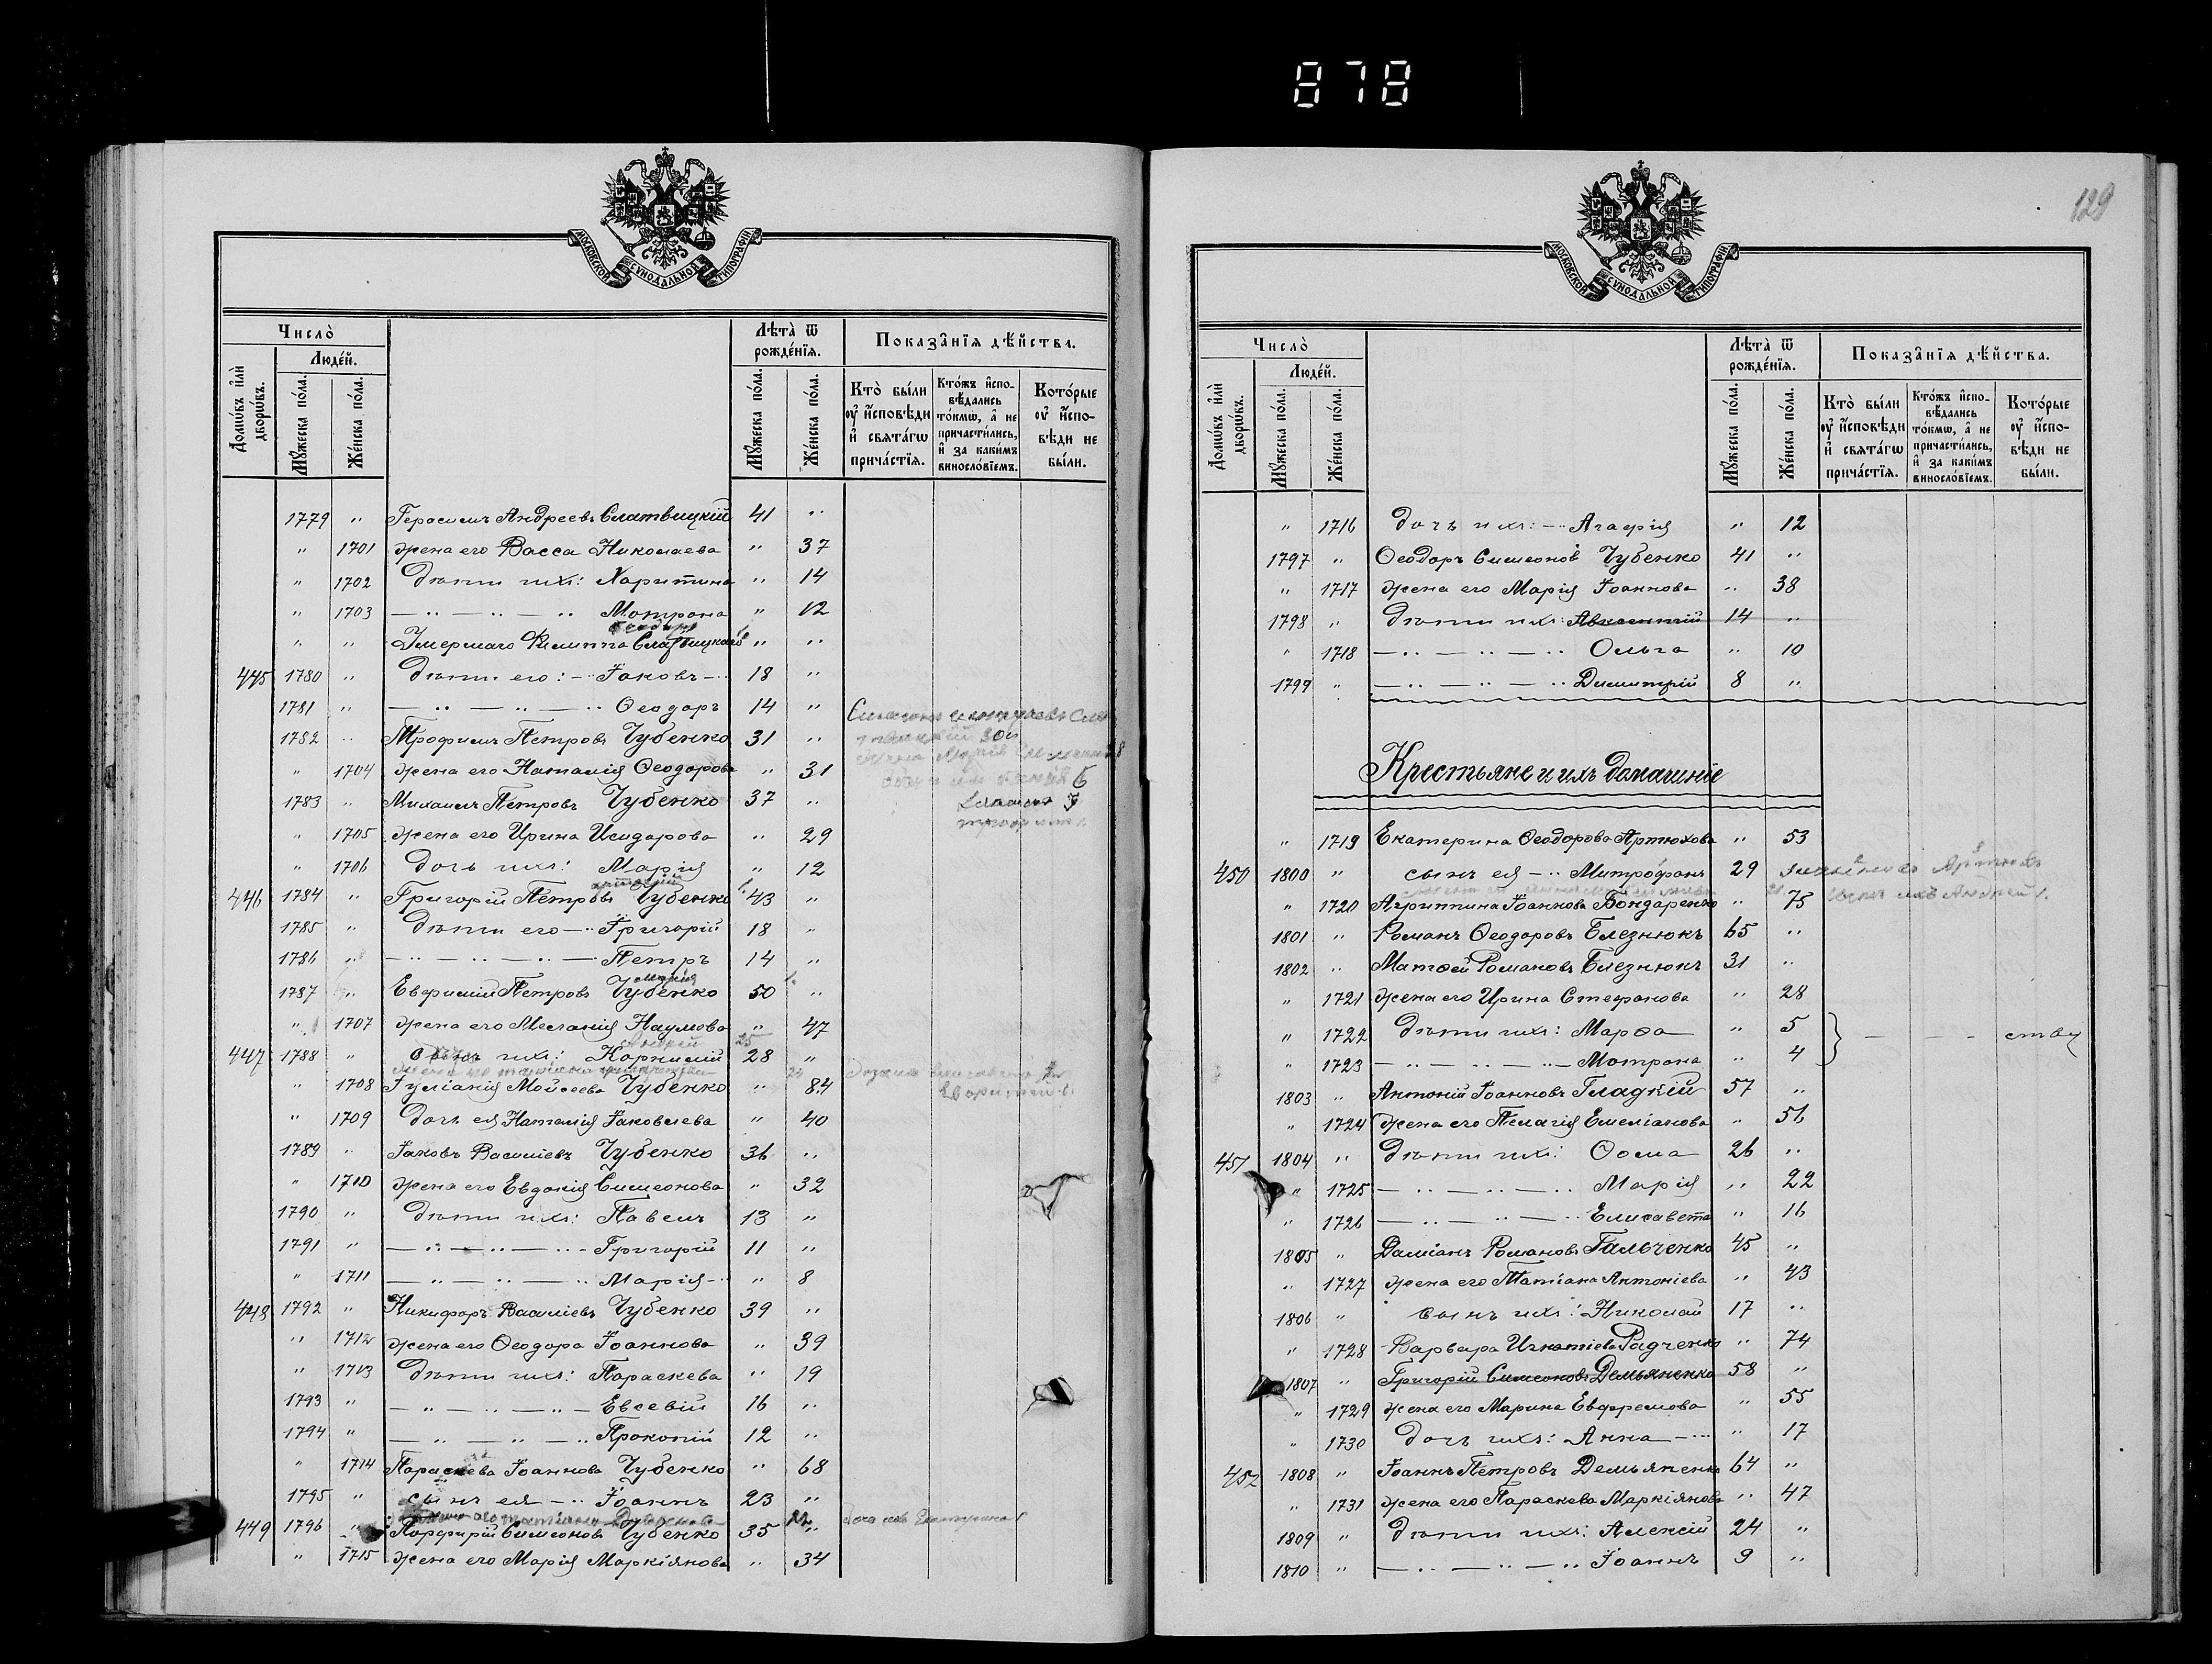 878
МОСКОВСКОЙ СѴНОДАЛЬНОЙ ТИПОГРАФІИ
Число̀
Людéй.
Лѣта̀ ѿ рождéнїѧ.
Показа̂нїѧ дѣ́йства.
Домѡ́въ и҆лѝ дворѡ́въ.
Мꙋ́жеска по́ла.
Же́нска по́ла.
Мꙋ́жеска по́ла.
Же́нска по́ла.
Кто̀ были ѹ҆ и҆сповѣди и҆ свѧта́гѡ прича́стїѧ.
Кто́жъ и҆спо-вѣдались то́кмѡ, а҆ не причасти́лись, и҆ за каки́мъ винослóвїемъ.
Кото́рые ѹ҆ и҆спо-вѣди не бы́ли.
1779 " Герасимъ Андреевъ Слатвицкій 41 "
" 1701 жена его Васса Николаева " 37
" 1702 дѣти ихъ: Харитина " 14
" 1703 — " — " — " Мотрона " 12
" " Умершаго Филиппа Слатвицкаго " "
445 1780 " дѣти его: — " Іаковъ — " 18 "
1781 " — " — " — " Ѳеодоръ 14 "
1782 " Трофимъ Петровъ Чубенко 31 "
" 1704 жена его Наталія Ѳеодорова " 31
1783 " Михаилъ Петровъ Чубенко 37 "
" 1705 жена его Ирина Исидорова " 29
" 1706 дочь ихъ: Марія " 12
446 1784 " Григорій Петровъ Чубенко 43 "
1785 " дѣти его — " Григорій 18 "
1786 " — " — " — " — Петръ 14 "
1787 " Евфимій Петровъ Чубенко 50 "
" 1707 жена его Меланія Наумова " 47
447 1788 " сынъ ихъ: Корнилій 28 "
" 1708 Іуліанія Мойсеева Чубенко " 84
" 1709 дочь ея Наталія Іаковлева " 40
1789 " Іаковъ Василіевъ Чубенко 36 "
" 1710 жена его Евдокія Симеонова " 32
1790 " дѣти ихъ: Павелъ 13 "
1791 " — " — " — " — Григорій 11 "
" 1711 — " — " — " Марія — " " 8
448 1792 " Никифоръ Василіевъ Чубенко 39 "
" 1712 жена его Ѳеодора Іоаннова " 39
" 1713 дѣти ихъ: Параскева " 19
1793 " — " — " — " — Евсевій 16 "
1794 " — " — " — " Прокопій 12 "
" 1714 Параскева Іоаннова Чубенко " 68
1795 " сынъ ея — " Іоаннъ 23 "
449 1796 " Порфирій Симеоновъ Чубенко 35 "
" 1715 жена его Марія Маркіянова " 34
129
МОСКОВСКОЙ СѴНОДАЛЬНОЙ ТИПОГРАФІИ
Число̀
Людéй.
Лѣта̀ ѿ рождéнїѧ.
Показа̂нїѧ дѣ́йства.
Домѡ́въ и҆лѝ дворѡ́въ.
Мꙋ́жеска по́ла.
Же́нска по́ла.
Мꙋ́жеска по́ла.
Же́нска по́ла.
Кто̀ были ѹ҆ и҆сповѣди и҆ свѧта́гѡ прича́стїѧ.
Кто́жъ и҆спо-вѣдались то́кмѡ, а҆ не причасти́лись, и҆ за каки́мъ винослóвїемъ.
Кото́рые ѹ҆ и҆спо-вѣди не бы́ли.
" 1716 дочь ихъ: — " Агафія " 12
1797 " Ѳеодоръ Симеоновъ Чубенко 41 "
" 1717 жена его Марія Іоаннова " 38
1798 " дѣти ихъ: Авксентій 14 "
" 1718 — " — " — " Ольга " 10
1799 " — " — " — " Димитрій 8 "
Крестьяне и ихъ домашніе
" 1719 Екатерина Ѳеодорова Артюхова " 53
450 1800 " сынъ ея — " Митрофанъ 29
" 1720 Агриппина Іоаннова Бондаренко " 75
1801 " Романъ Ѳеодоровъ Блезнюкъ 65 "
1802 " Матѳей Романовъ Блезнюкъ 31 "
" 1721 жена его Ирина Стефанова " 28
" 1722 дѣти ихъ: Марѳа " 5
" 1723 — " — " — " — Мотрона " 4
1803 " Антоній Іоанновъ Гладкій 57 "
" 1724 жена его Пелагія Емеліанова " 56
451 1804 " дѣти ихъ: Ѳома 26 "
" 1725 — " — " — " Марія " 22
" 1726 — " — " — " Елисавета " 16
1805 " Даміанъ Романовъ Гальченко 45 "
" 1727 жена его Татіана Антоніева " 43
1806 " сынъ ихъ: Николай 17 "
" 1728 Варвара Игнатіева Радченко " 74
1807 " Григорій Симеоновъ Демьяненко 58 "
" 1729 жена его Марина Евфремова " 55
" 1730 дочь ихъ: Анна — " " 17
452 1808 " Іоаннъ Петровъ Демьяненко 64 "
" 1731 жена его Параскева Маркіянова " 47
1809 " дѣти ихъ: Алексій 24 "
1810 " — " — " — " Іоаннъ 9 "